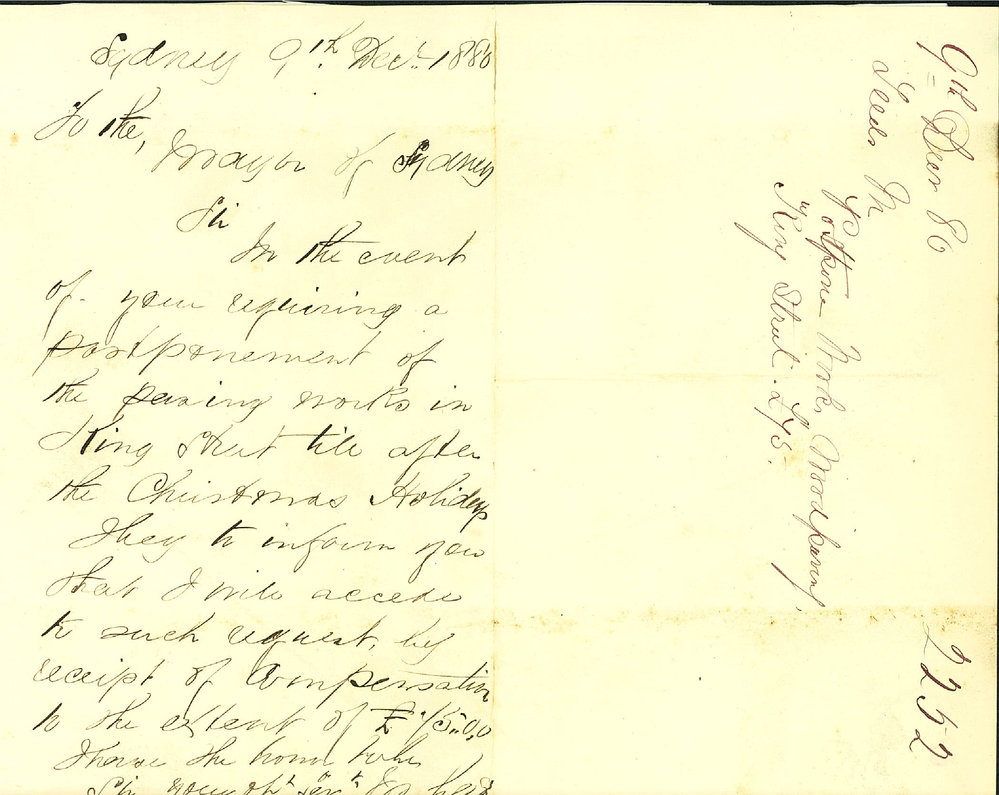 Sydney 9th. Decr. 1880
To the,
Mayor of Sydney
Sir
In the event
of your requiring a
postponement of
the paving works in
King Street till after
the Christmas Holidays
I beg to inform you
that I will accede
to such request, by
receipt of Compensation
to the extent of £75.0.0
I have the honor to be
Sir your obt servt
9th Decr 80
Postpone Works Woodpaving,
King Street. £75.
2252